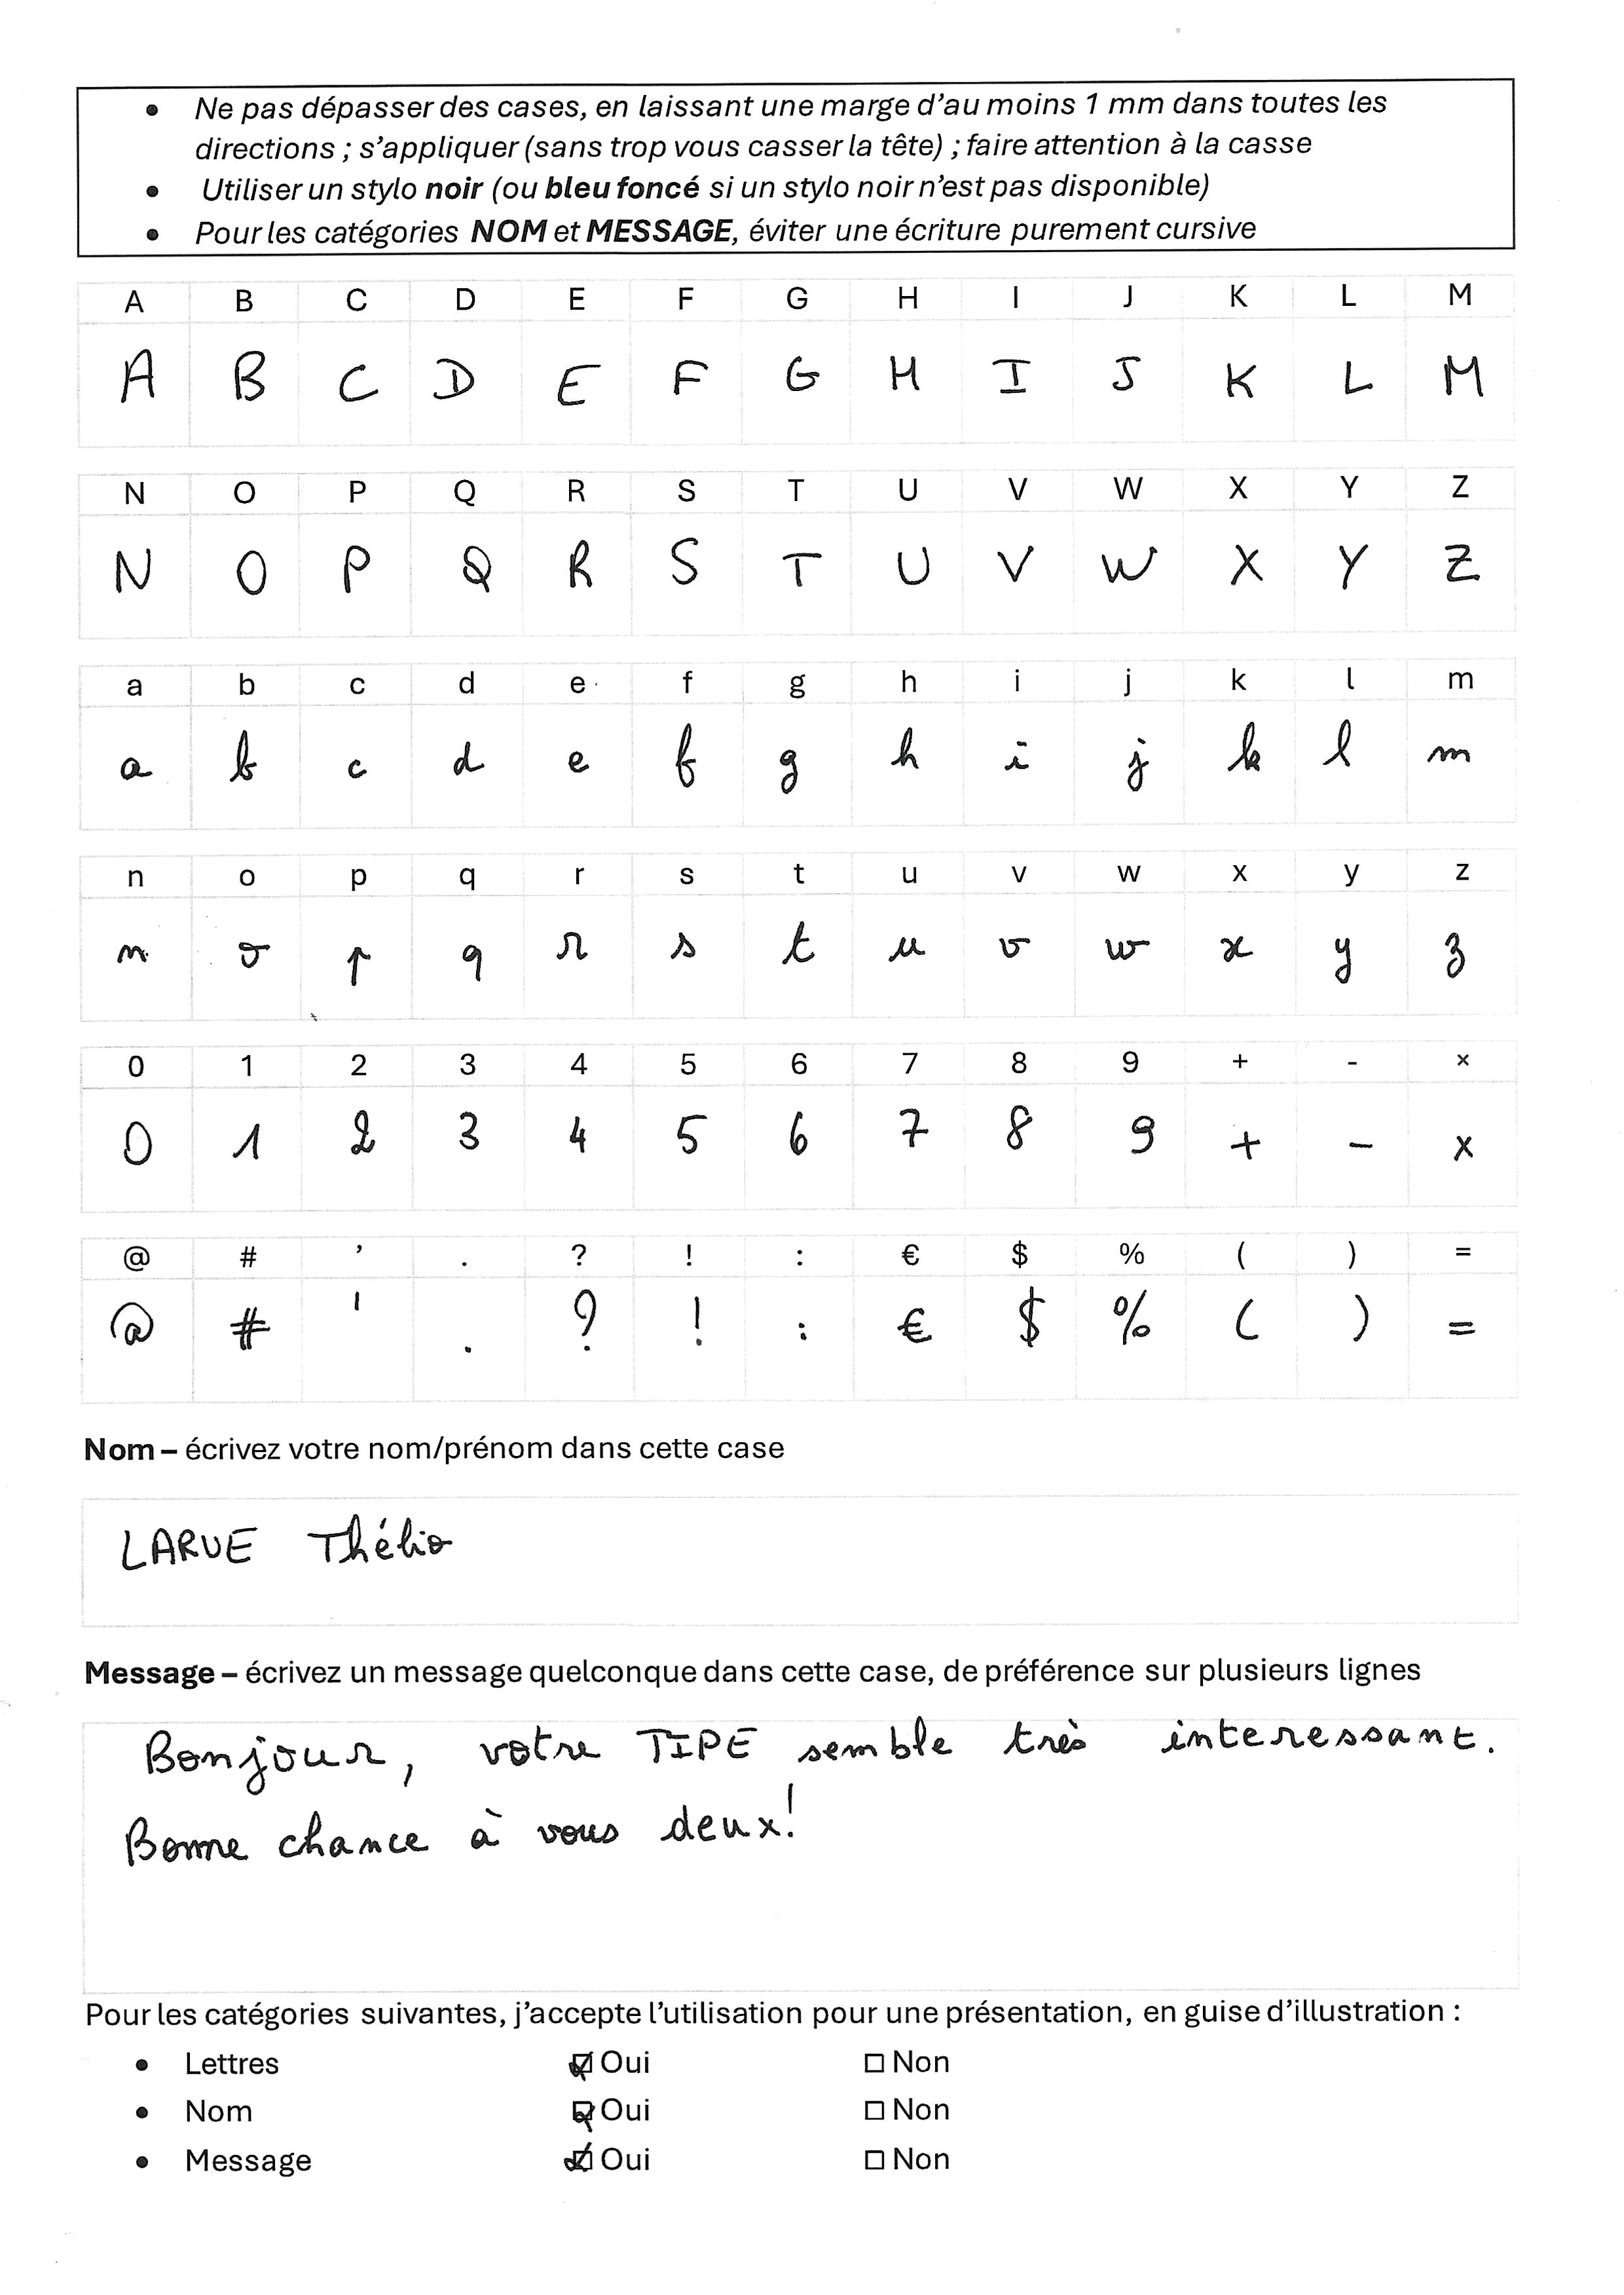 • Ne pas dépasser des cases, en laissant une marge d'au moins 1 mm dans toutes les
directions ; s'appliquer (sans trop vous casser la tête) ; faire attention à la casse
• Utiliser un stylo noir (ou bleu foncé si un stylo noir n'est pas disponible)
• Pour les catégories NOM et MESSAGE, éviter une écriture purement cursive
A B C D E F G H I J K L M
A B C D E F G H I J K L M
N O P Q R S T U V W X Y Z
N O P Q R S T U V W X Y Z
a b c d e f g h i j k l m
a b c d e f g h i j k l m
n o p q r s t u v w x y z
n o p q r s t u v w x y z
0 1 2 3 4 5 6 7 8 9 + - ×
0 1 2 3 4 5 6 7 8 9 + - ×
@ # ’ . ? ! : € $ % ( ) =
@ # ' . ? ! : € $ % ( ) =
Nom – écrivez votre nom/prénom dans cette case
LARUE Thélio
Message – écrivez un message quelconque dans cette case, de préférence sur plusieurs lignes
Bonjour, votre TIPE semble très interessant.
Bonne chance à vous deux!
Pour les catégories suivantes, j'accepte l'utilisation pour une présentation, en guise d'illustration :
• Lettres ☑ Oui ☐ Non
• Nom ☑ Oui ☐ Non
• Message ☑ Oui ☐ Non